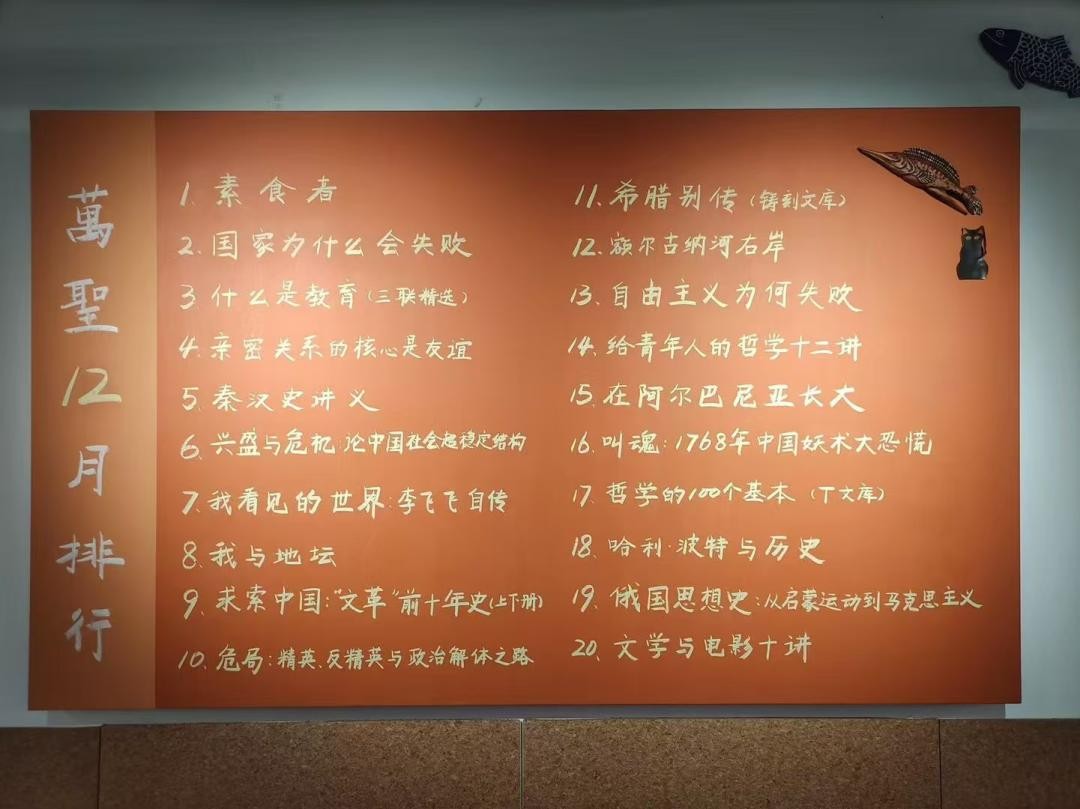 萬聖12月排行
1. 素食者
2. 国家为什么会失败
3. 什么是教育（三联精选）
4. 亲密关系的核心是友谊
5. 秦汉史讲义
6. 兴盛与危机:论中国社会超稳定结构
7. 我看见的世界:李飞飞自传
8. 我与地坛
9. 求索中国:"文革"前十年史(上下册)
10. 危局:精英、反精英与政治解体之路
11. 希腊别传（铸刻文库）
12. 额尔古纳河右岸
13. 自由主义为何失败
14. 给青年人的哲学十二讲
15. 在阿尔巴尼亚长大
16. 叫魂:1768年中国妖术大恐慌
17. 哲学的100个基本（T文库）
18. 哈利·波特与历史
19. 俄国思想史:从启蒙运动到马克思主义
20. 文学与电影十讲